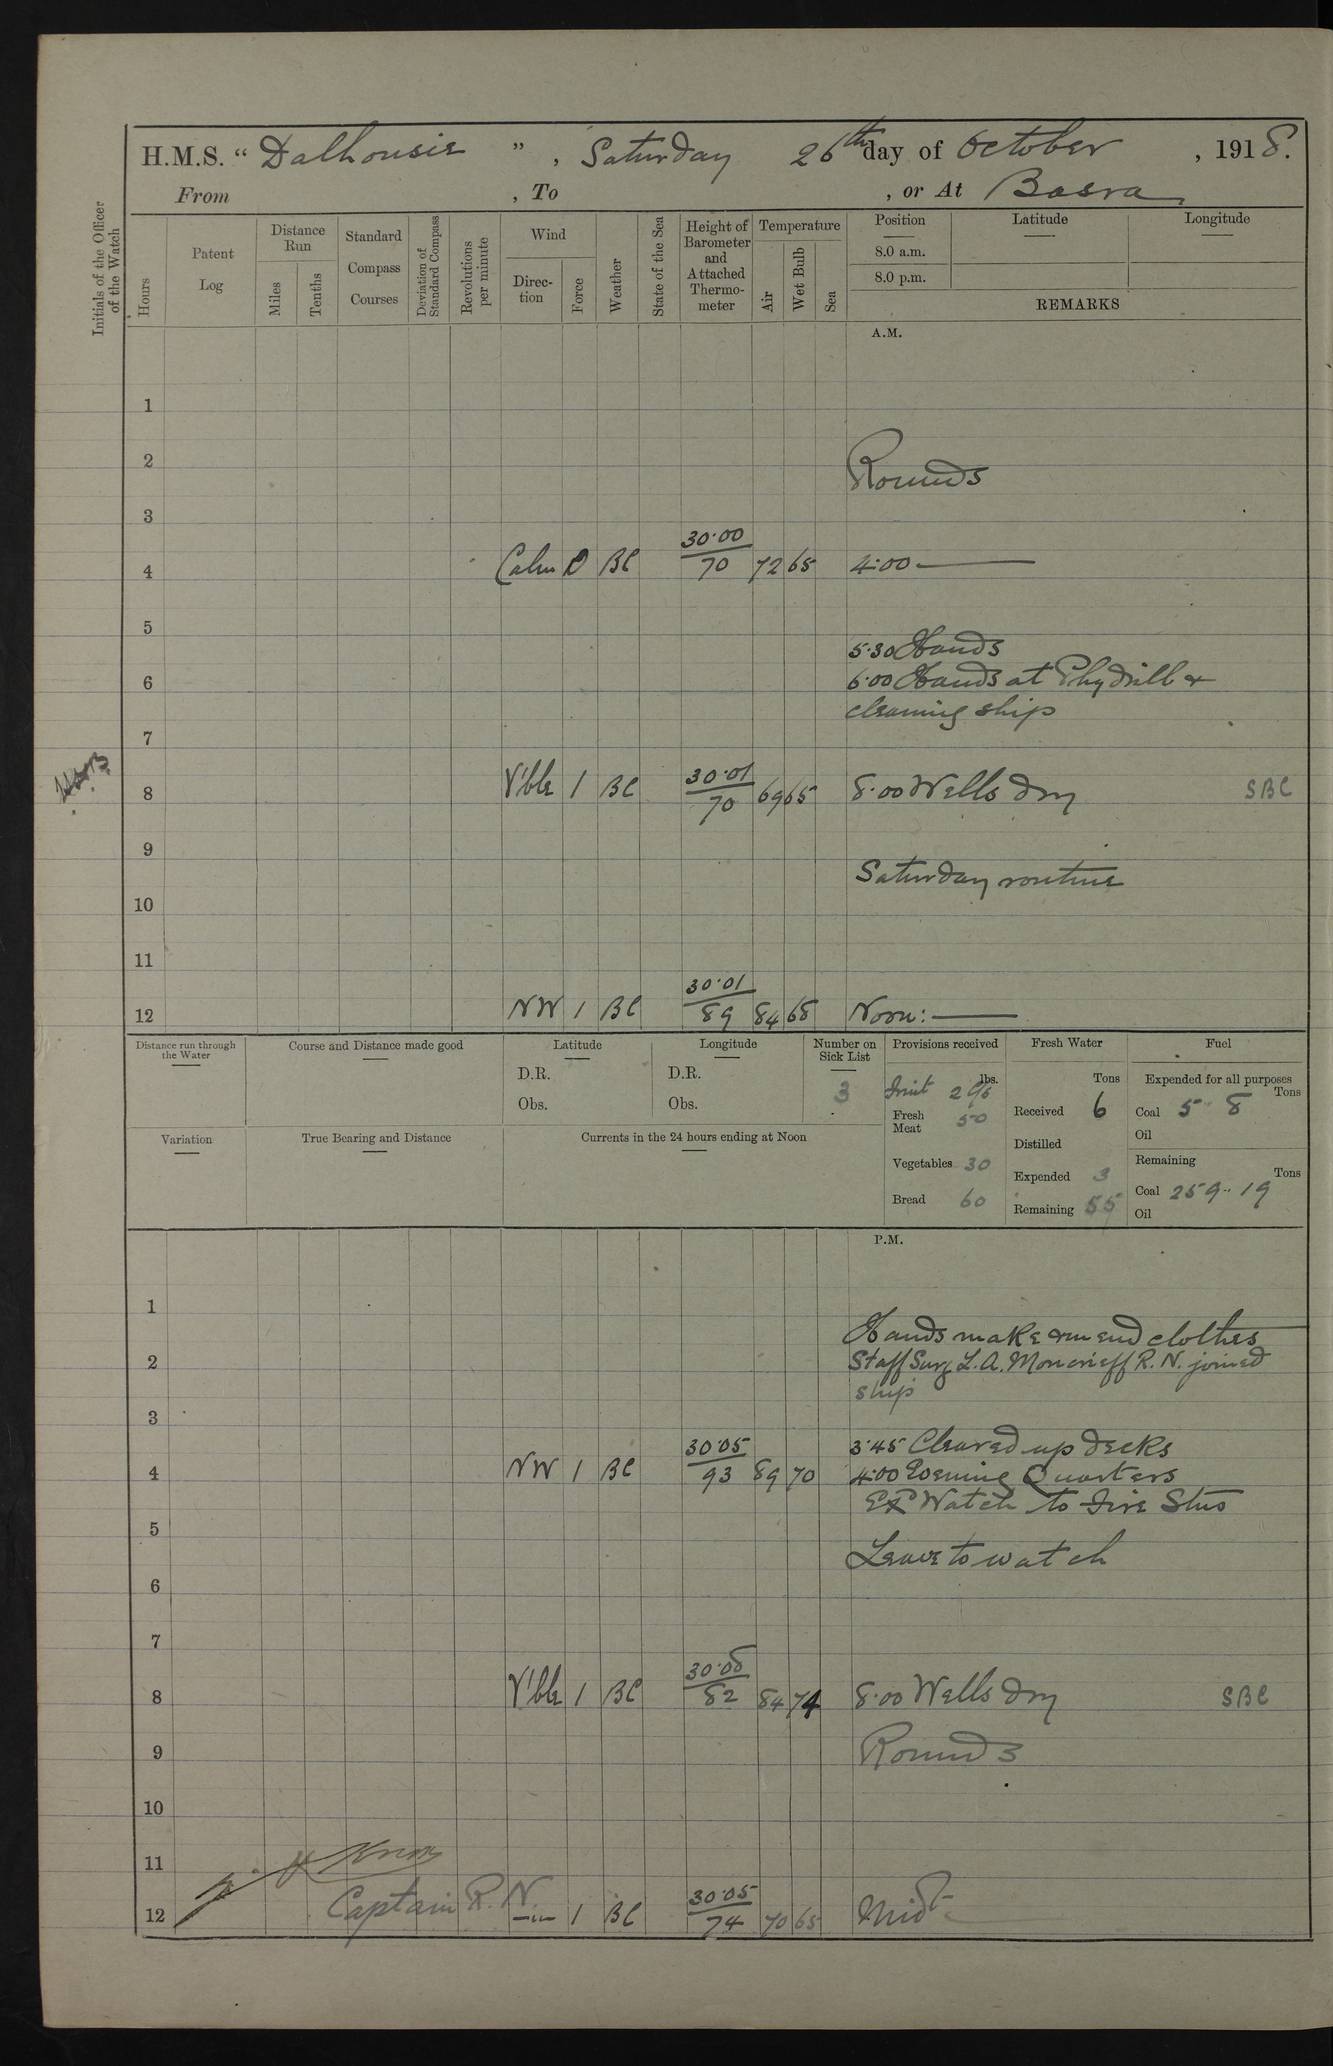 H.M.S. “ Dalhousie ” , Saturday 26th day of October , 1918.
From , To , or At Basra
Initials of the Officer of the Watch
Hours
Patent Log
Distance Run
Miles
Tenths
Standard Compass Courses
Deviation of Standard Compass
Revolutions per minute
Wind
Direction
Force
Weather
State of the Sea
Height of Barometer and Attached Thermometer
Temperature
Air
Wet Bulb
Sea
Position Latitude Longitude
8.0 a.m.
8.0 p.m.
REMARKS
A.M.
1
2
Rounds
3
4 Calm 0 BC 30.00/70 72 65 4.00
5
5.30 Hands
6 6.00 Hands at Phydrill &
cleaning ship
7
8 V'ble 1 BC 30.01/70 69 65 8.00 Wells dry SBC
9
Saturday routine
10
11
12 NW 1 BC 30.01/89 84 68 Noon:
Distance run through the Water
Course and Distance made good
Latitude
D.R.
Obs.
Longitude
D.R.
Obs.
Number on Sick List
3
Variation
True Bearing and Distance
Currents in the 24 hours ending at Noon
Provisions received
lbs.
Fruit
Fresh Meat 50
Vegetables 30
Bread 60
Fresh Water
Tons
Received 6
Distilled
Expended 3
Remaining 55
Fuel
Expended for all purposes
Tons
Coal 5 - 8
Oil
Remaining
Tons
Coal 259 - 19
Oil
P.M.
1
Hands make & mend clothes
2 Staff Surg L.A. Moncrieff R.N. joined
ship
3
3.45 Cleared up decks
4 NW 1 BC 30.05/93 89 70 4.00 Evening Quarters
Ex Watch to Fire Stns
5
Leave to watch
6
7
8 V'ble 1 BC 82 84 74 8.00 Wells dry SBC
9 Rounds
10
11
Captain R.N.
12 —"— 1 BC 30.05/74 70 65 Midt